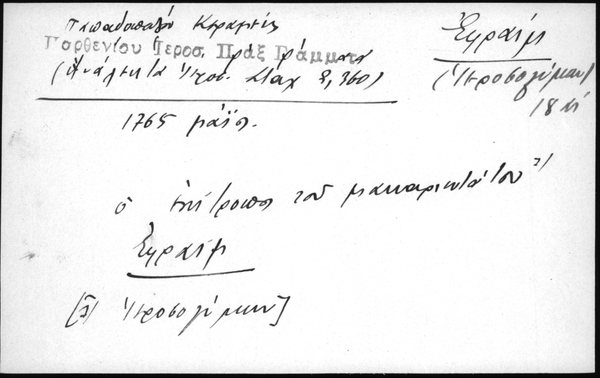 Παπαδοπούλου Κεραμέως
Παρθενίου Ιεροσ. Πράξ Γράμματα
(Ἀνάλεκτα Ἱεροσ. Σταχ 3, 360)
Ἐφραὶμ
(Ἱεροσολύμων)
18 αἰ
1765 μάϊος.
ὁ ἐπίτροπος τοῦ μακαριωτάτου
Ἐφραὶμ
Ἱεροσολύμων]